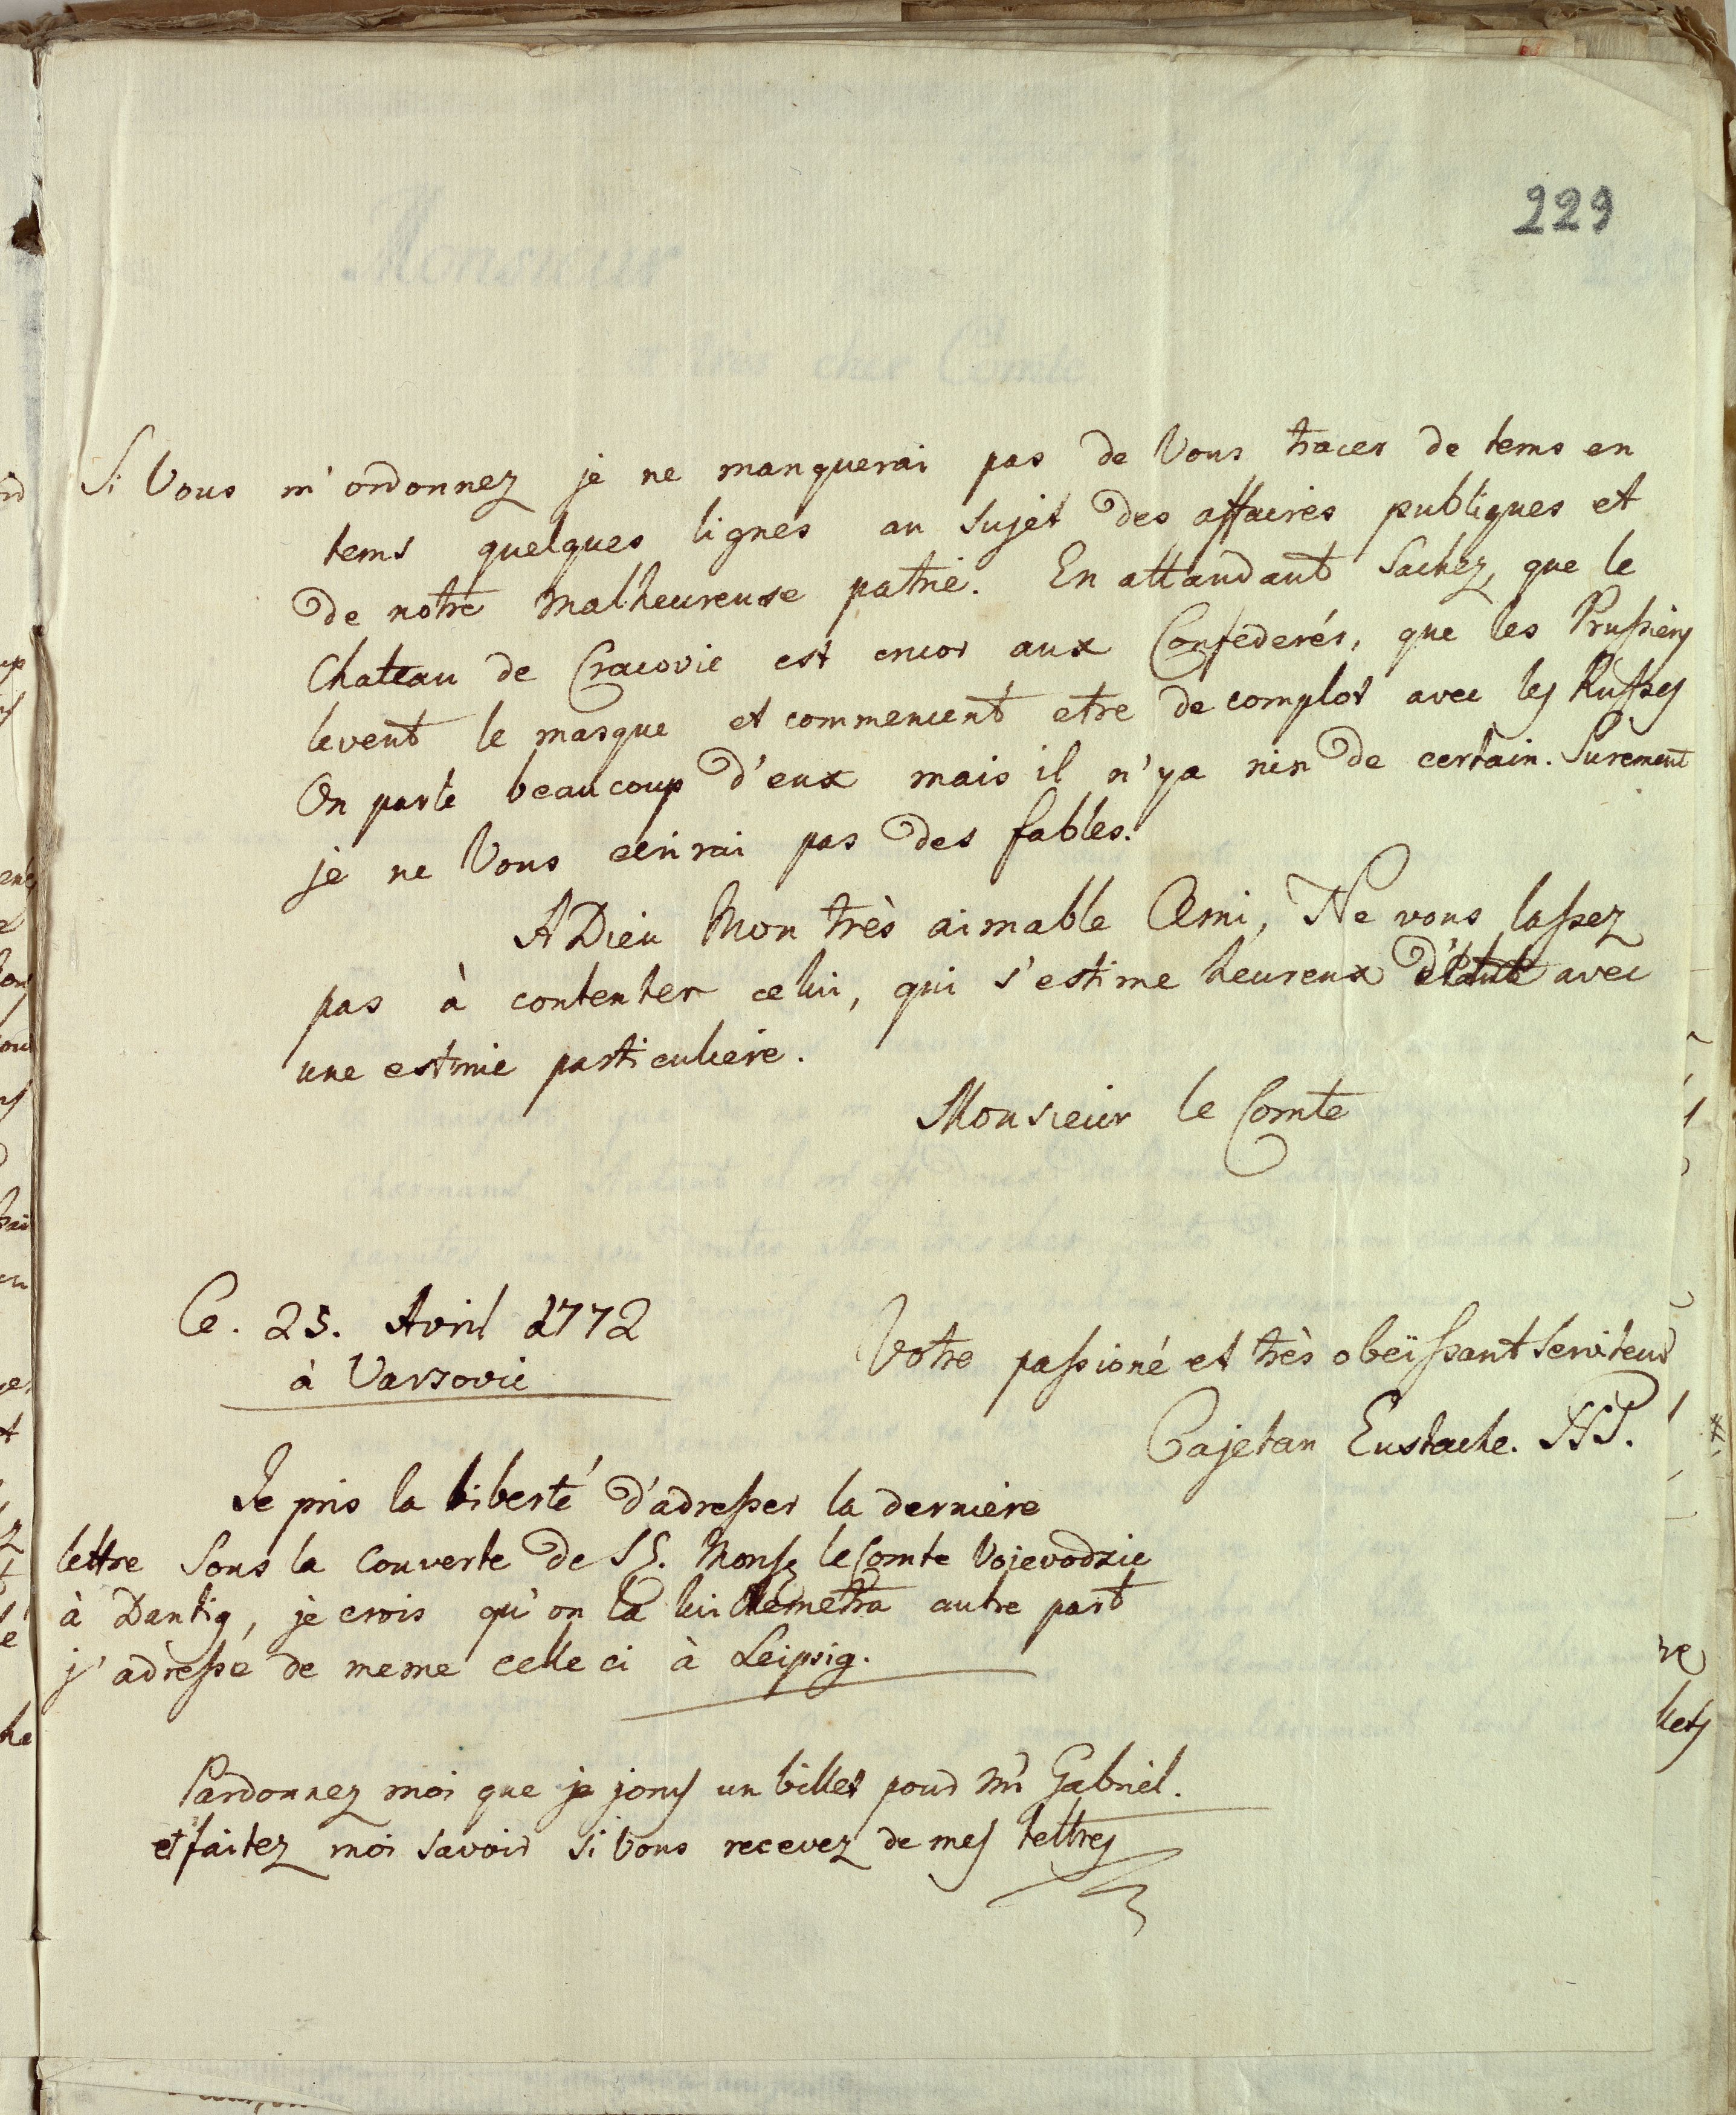 229
Si Vous m'ordonnez je ne manquerai pas de Vous tracer de tems en
tems quelques lignes au sujet des affaires publiques et
de notre malheureuse patrie. En attandant Sachez, que le
Chateau de Cracovie est encor aux Confederés, que les Prussiens
levent le masque et commencent etre de complot avec les Russes
On parle beaucoup d'eux mais il n'ya rien de certain. Surement
je ne Vous ecrirai pas des fables.
ADieu Mon très aimable Ami, Ne vous lassez
pas à contenter celui, qui s'estime heureux avec
une estime particuliere.
Monsieur le Comte
Ce. 25. Avril 1772
à Varsovie
Votre passioné et très obeïssant Serviteur
Cajetan Eustache.
Je pris la liberté d'adresser la derniere
lettre Sous la Couverte de le Comte Vojevodzic
à Dantig, je crois qu'on la lui remetra autre part
j'adresse de meme celle ci à Leipsig.
Pardonnez moi que je joins un billet pour Mr Gabriel.
et faitez moi savoir si Vous recevez de mes lettres